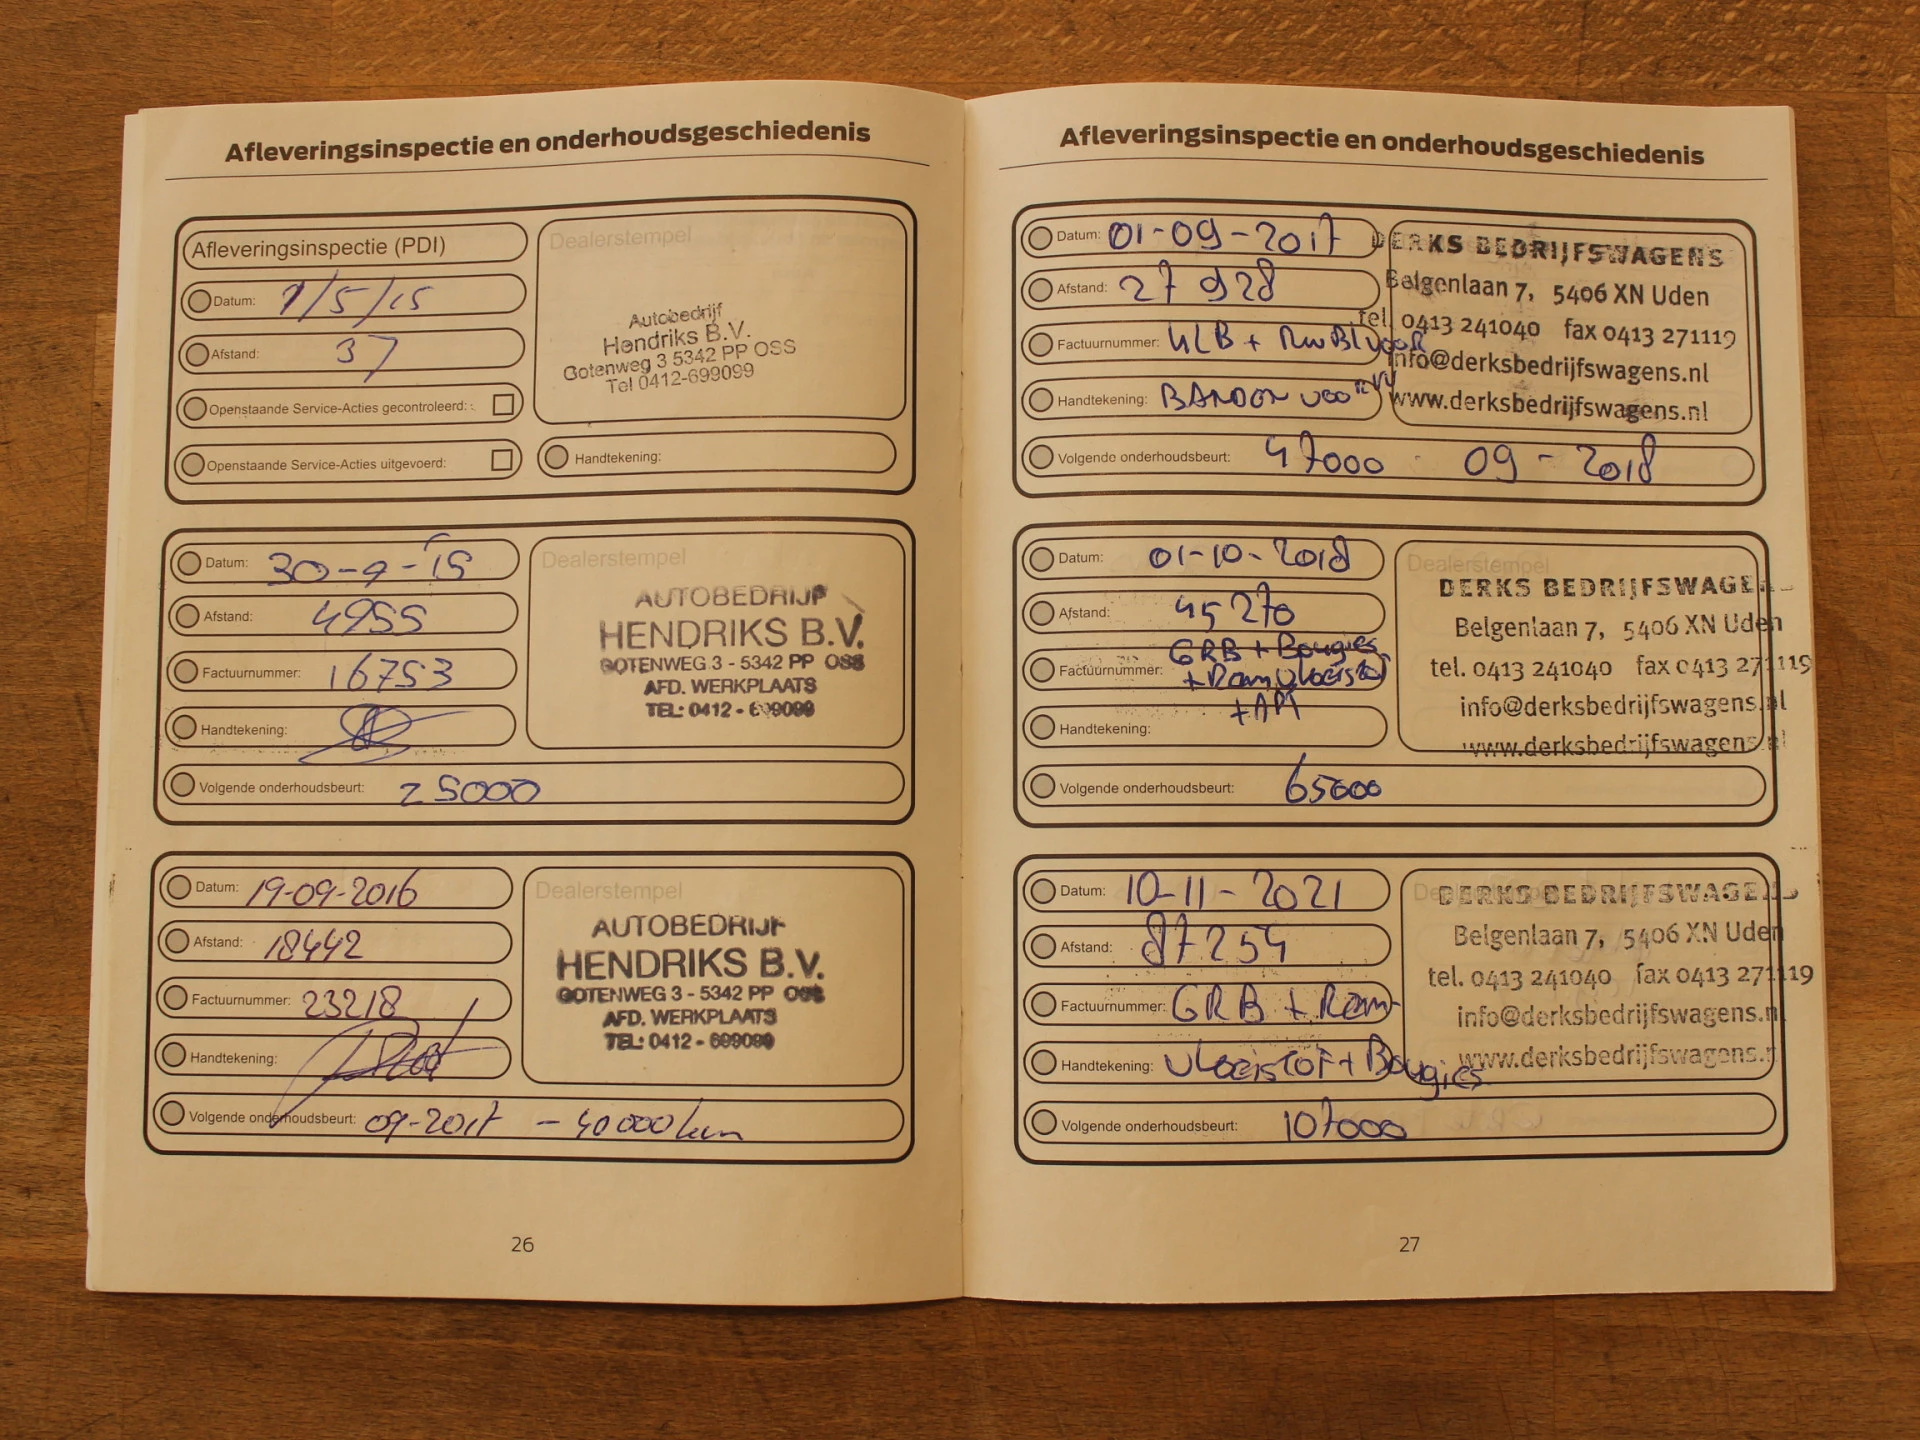 Afleveringsinspectie en onderhoudsgeschiedenis
Afleveringsinspectie (PDI)
Datum: 1/5/15
Afstand: 37
Openstaande Service-Acties gecontroleerd:
Openstaande Service-Acties uitgevoerd:
Dealerstempel
Autobedrijf
Hendriks B.V.
Gotenweg 3 5342 PP OSS
Tel 0412-699099
Handtekening:
Datum: 30-9-'15
Afstand: 4955
Factuurnummer: 16753
Handtekening:
Volgende onderhoudsbeurt: 25000
Dealerstempel
AUTOBEDRIJF
HENDRIKS B.V.
GOTENWEG 3 - 5342 PP OSS
AFD. WERKPLAATS
TEL: 0412 - 699099
Datum: 19-09-2016
Afstand: 18442
Factuurnummer: 23218
Handtekening:
Volgende onderhoudsbeurt: 09-2017 - 40000 km
Dealerstempel
AUTOBEDRIJF
HENDRIKS B.V.
GOTENWEG 3 - 5342 PP OSS
AFD. WERKPLAATS
TEL: 0412 - 699099
26
Afleveringsinspectie en onderhoudsgeschiedenis
Datum: 01-09-2017
Afstand: 27928
Factuurnummer: KLB +
Handtekening: BANDEN voor
Volgende onderhoudsbeurt: 47000 09-2018
DERKS BEDRIJFSWAGENS
Belgenlaan 7, 5406 XN Uden
tel. 0413 241040 fax 0413 271119
info@derksbedrijfswagens.nl
www.derksbedrijfswagens.nl
Datum: 01-10-2018
Afstand: 45270
GRB + Bougies
Factuurnummer: + Remvloeistof
+ APK
Handtekening:
Volgende onderhoudsbeurt: 65000
Dealerstempel
DERKS BEDRIJFSWAGEN
Belgenlaan 7, 5406 XN Uden
tel. 0413 241040 fax 0413 271119
info@derksbedrijfswagens.nl
www.derksbedrijfswagens.nl
Datum: 10-11-2021
Afstand: 87254
Factuurnummer: GRB + Rem-
Handtekening: vloeistof + Bougies
Volgende onderhoudsbeurt: 107000
DERKS BEDRIJFSWAGEN
Belgenlaan 7, 5406 XN Uden
tel. 0413 241040 fax 0413 271119
info@derksbedrijfswagens.n
www.derksbedrijfswagens.n
27